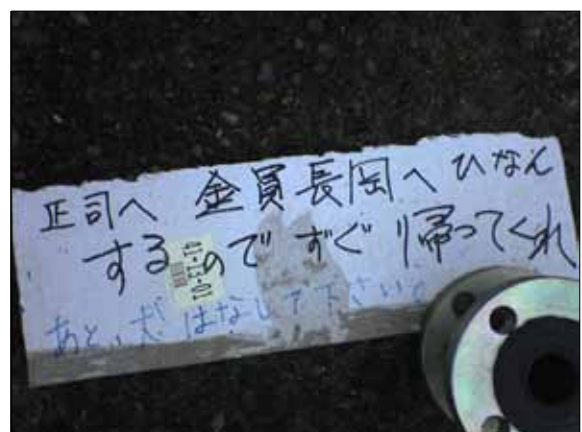 正司へ 金員長岡へ ひなん
するので すぐ 帰ってくれ
あと、犬 はなして下さい。